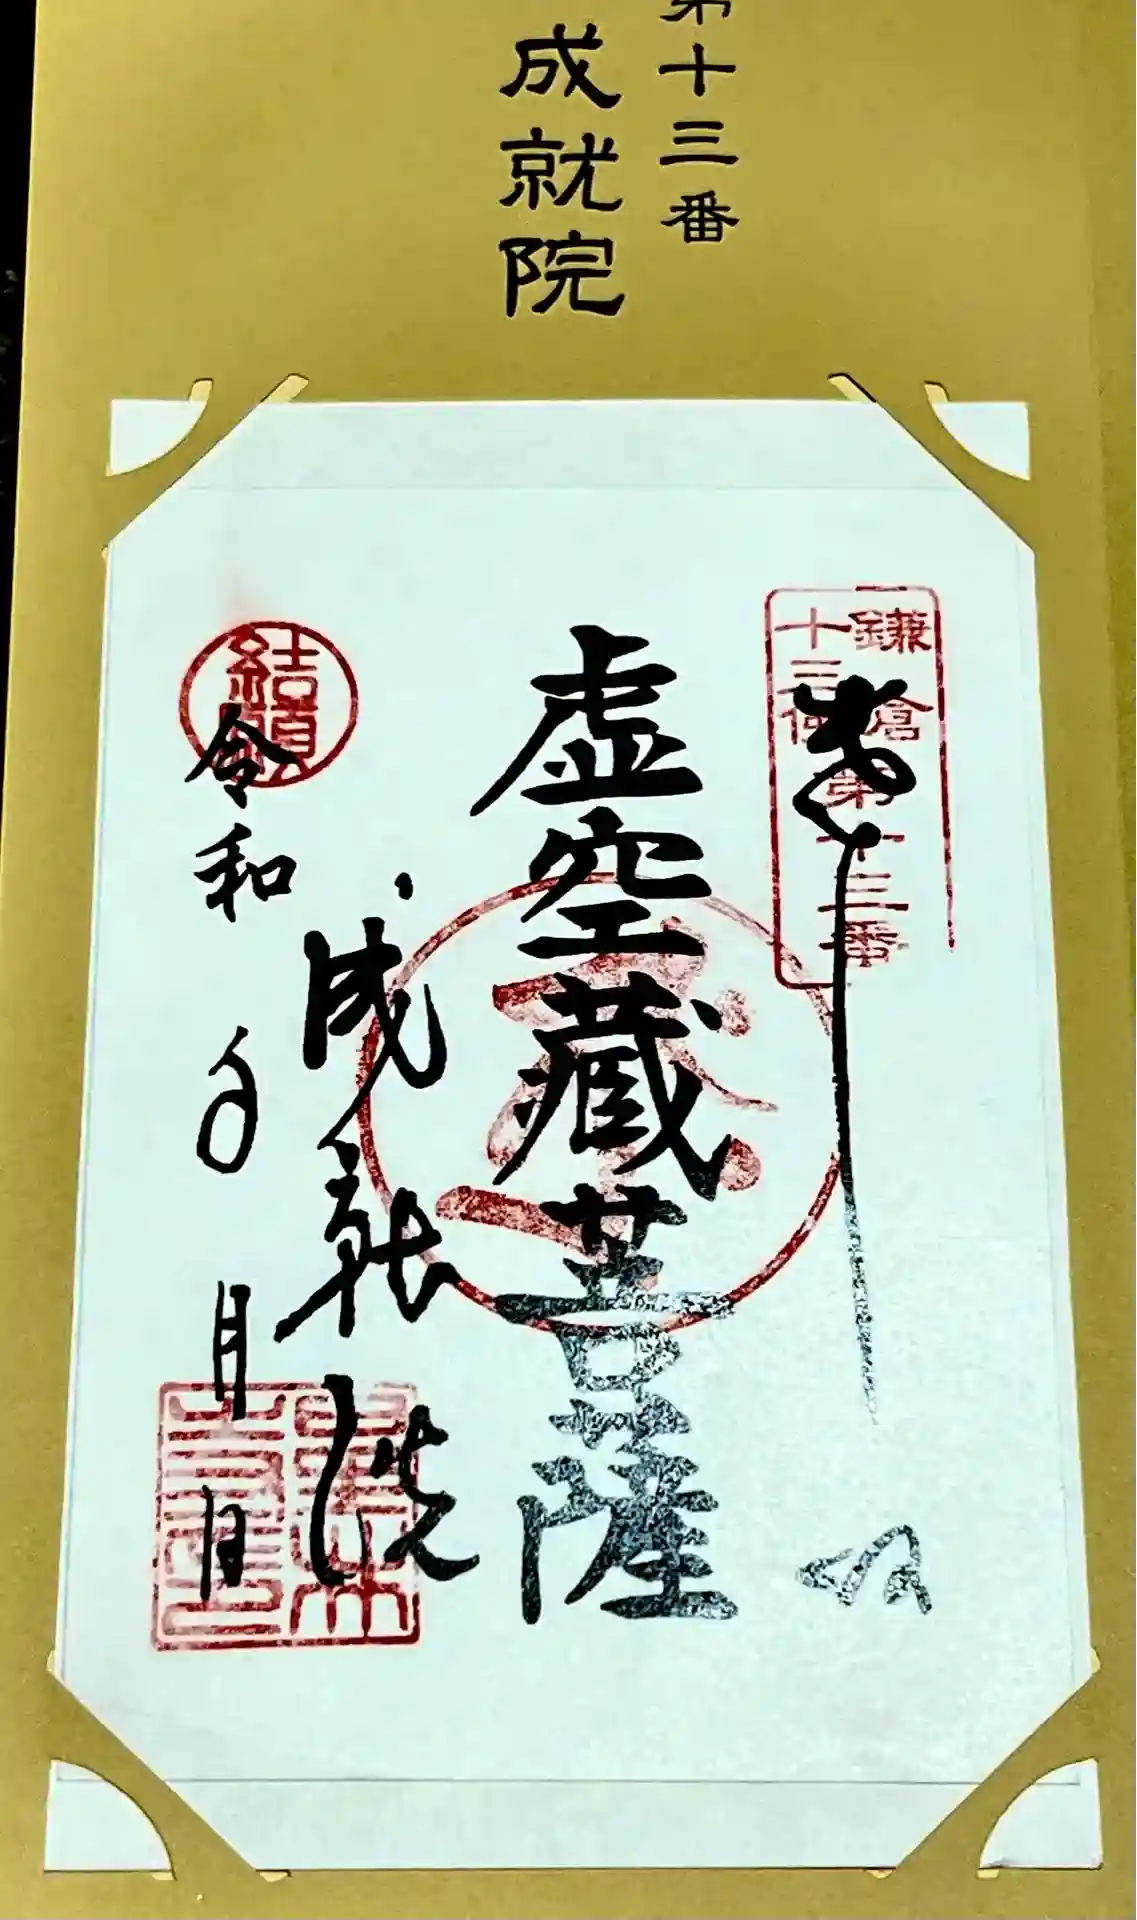 第十三番
成就院
鎌倉
十三佛
第十三番
奉拝
虚空蔵菩薩
成就院
結願
令和 年 月 日